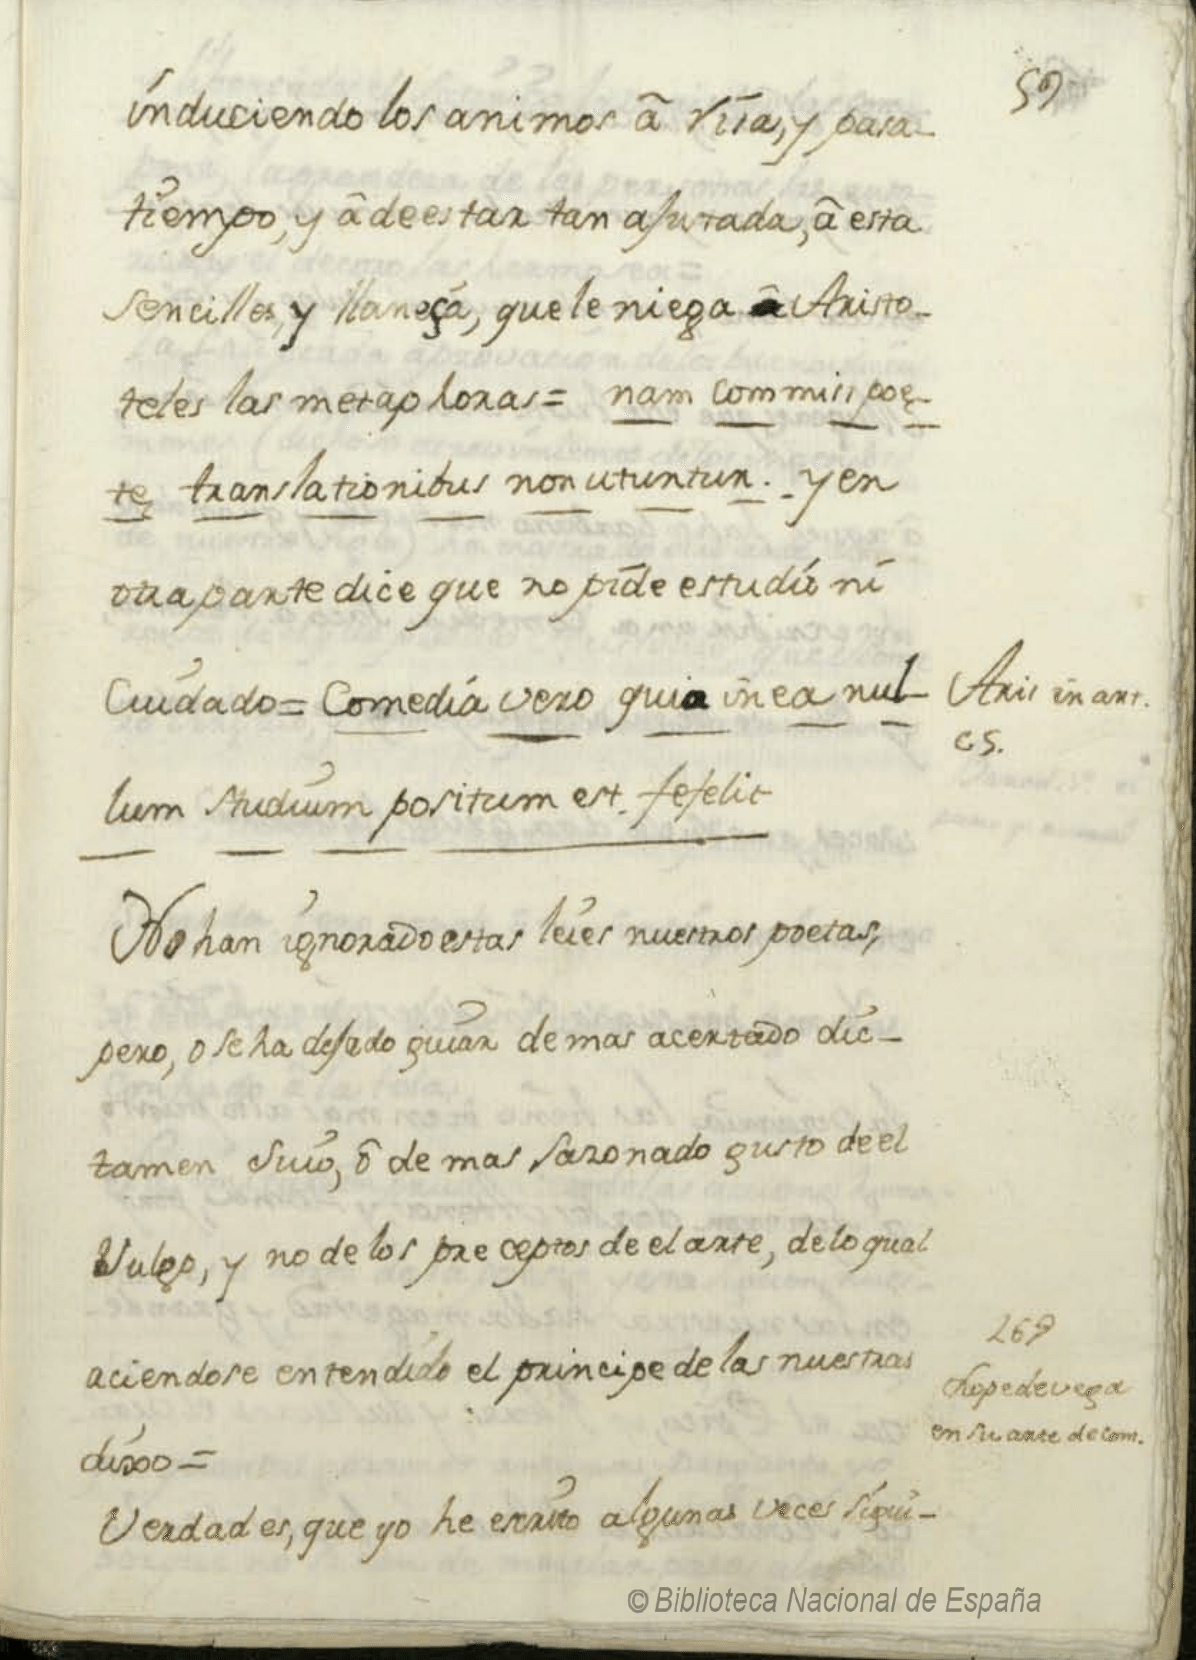 59
induciendo los animos â risa, y pasa-
tiempo, y â de estar tan ajustada, â esta
sencilles, y llaneça, que le niega â Aristo-
teles las metaphoras= nam commisi poę-
tę translationibus non utuntur. y en
otra parte dice que no pide estudio ni
Cuidado= Comedia vero quia in ea nul-
Aris in art.
c5.
lum studium positum est. fefelit
No han ignorado estas leies nuestros poetas,
pero, o se ha dejado guiar de mas acertado dic-
tamen suio, ô de mas sazonado gusto de el
Vulgo, y no de los preceptos de el arte, de lo qual
aciendose entendido el principe de las nuestras
269
Lope de vega
en su arte de com.
dixo=
Verdad es, que yo he escrito algunas veces sigui-
© Biblioteca Nacional de España